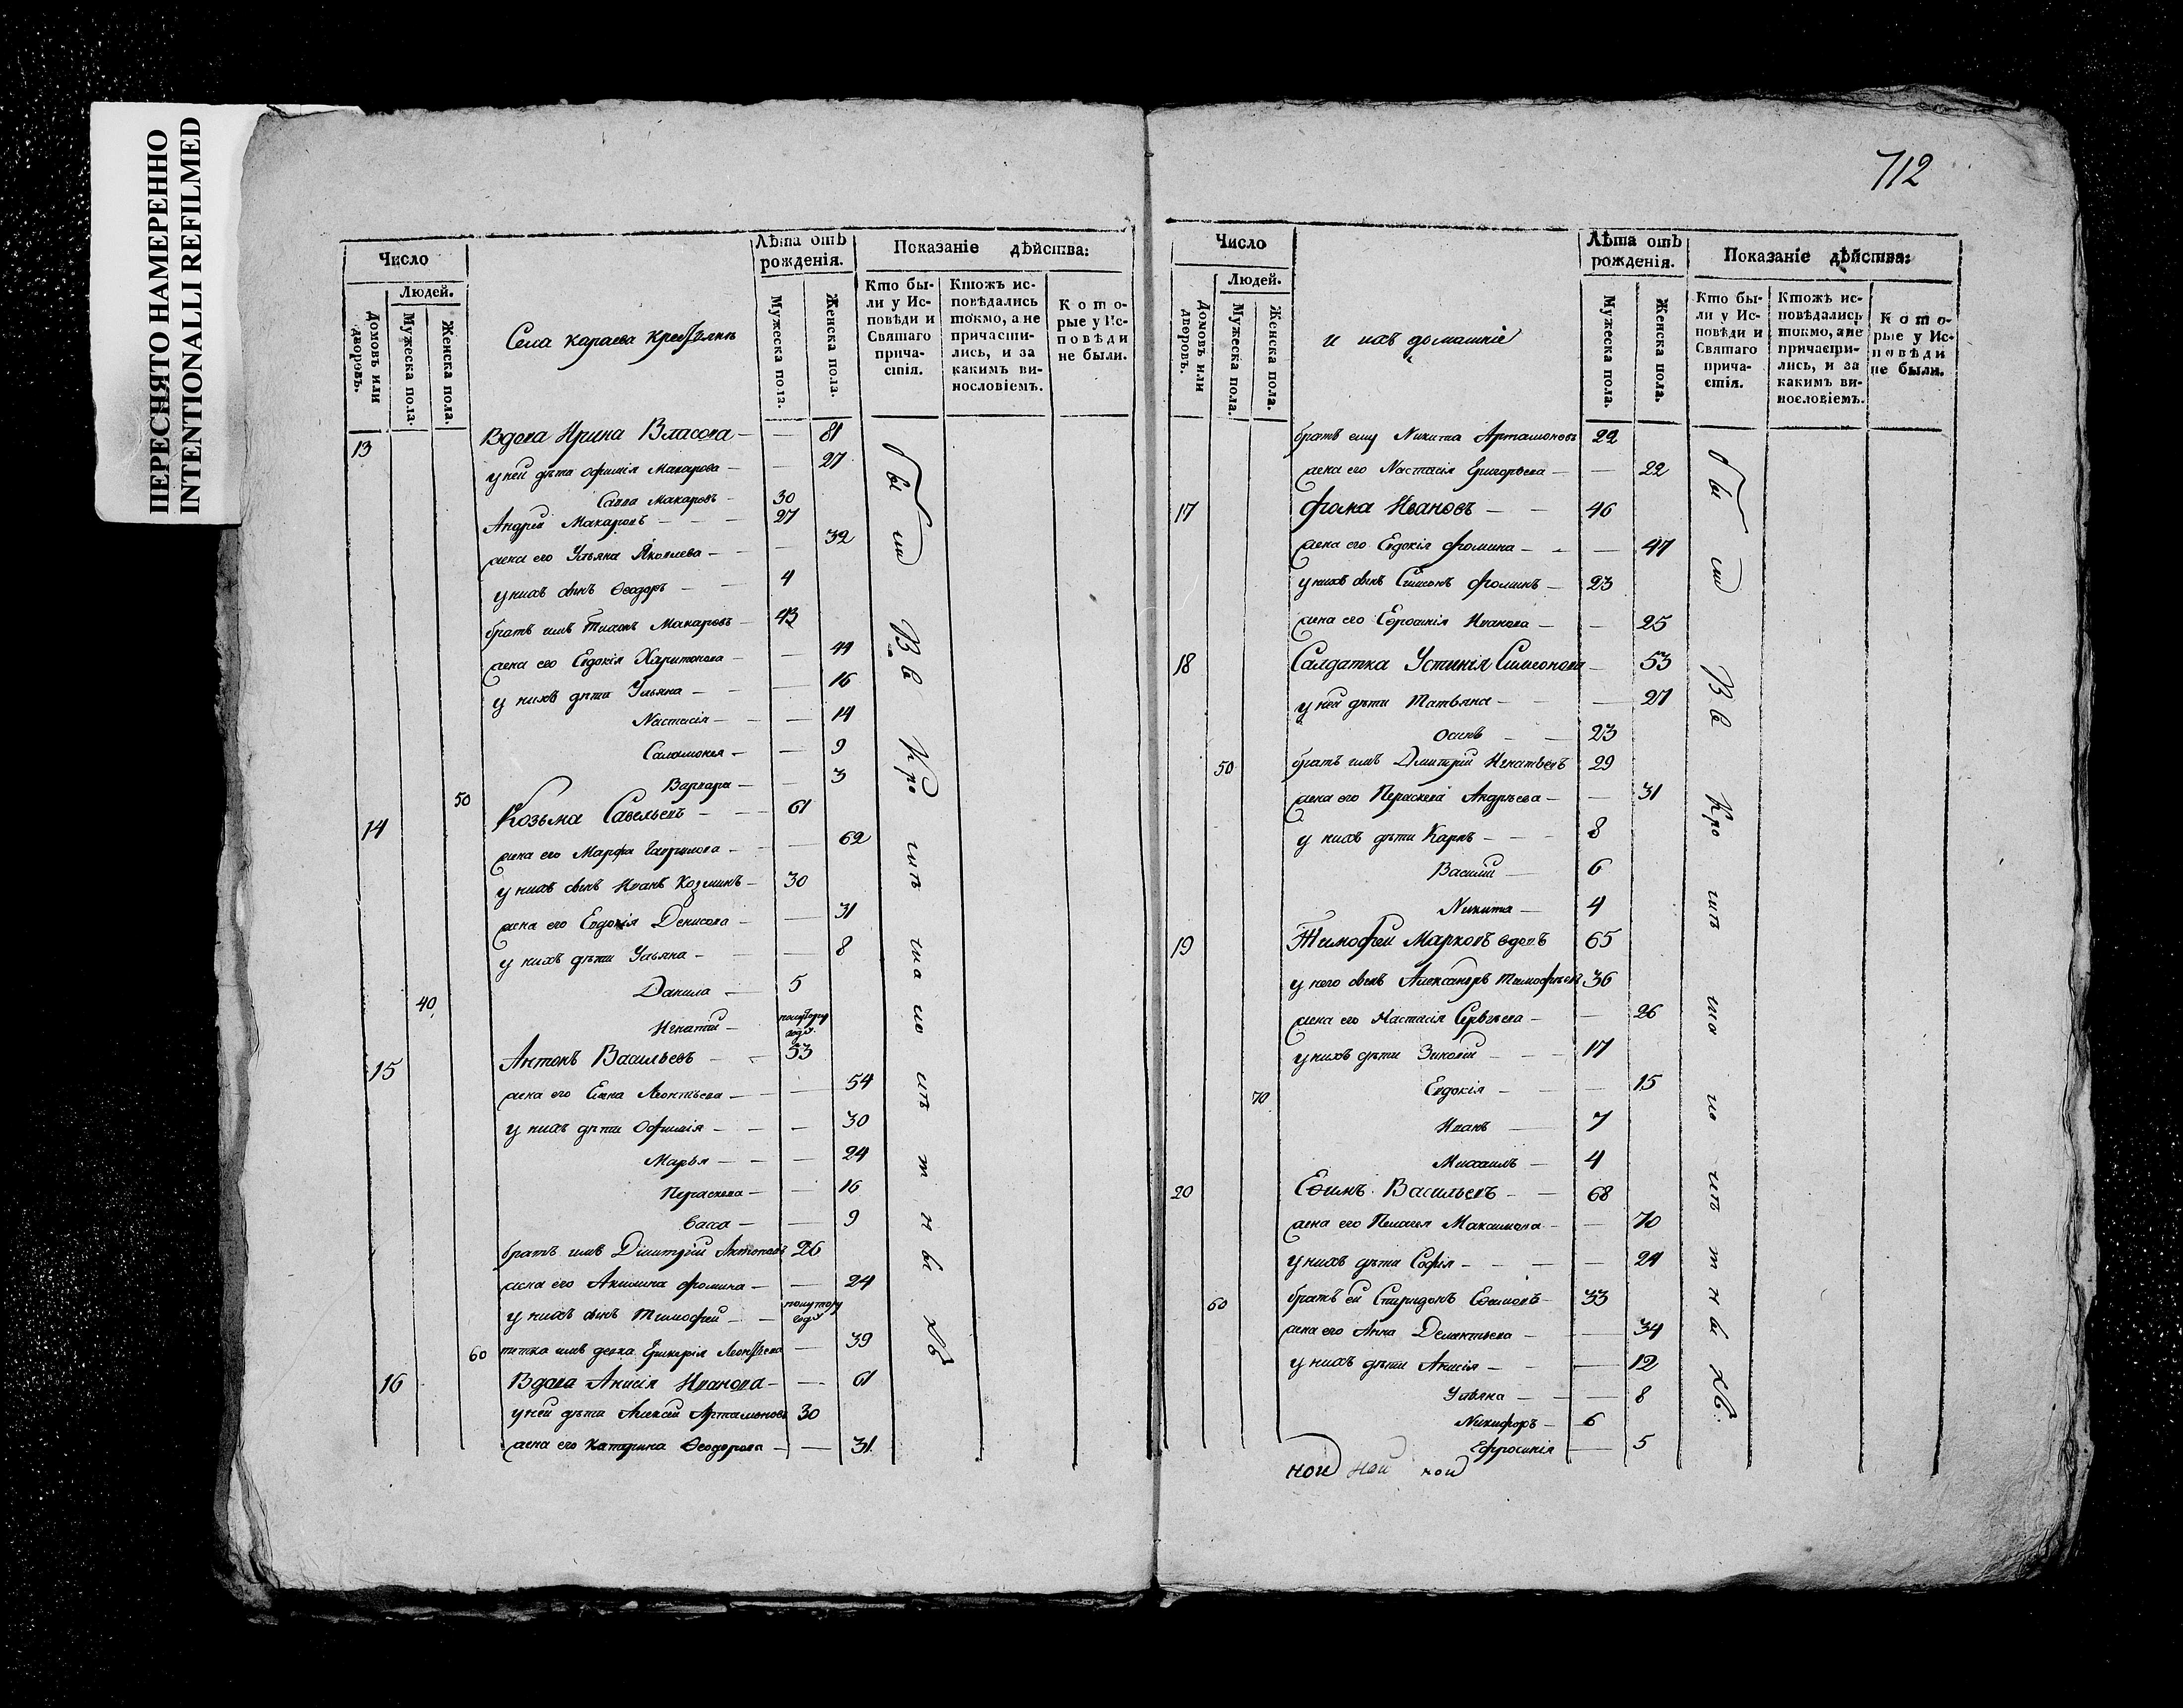 ПЕРЕСНЯТО НАМЕРЕННО
INTENTIONALLI REFILMED
712
Число
Людей.
Домовъ или дворовъ.
Мужеска пола.
Женска пола.
Села Караева Крестьянъ
Лѣта отъ рожденія.
Мужеска пола.
Женска пола.
Показаніе дѣйства:
Кто бы-
ли у Ис-
повѣди и
Святаго
прича-
стія.
Ктожъ ис-
повѣдались
токмо, а не
причасти-
лись, и за
какимъ ви-
нословіемъ.
Кото-
рые у Ис-
повѣди
не были.
13 Вдова Ирина Власова — — 81
у ней дѣти Офимія Макарова — — 27
Савва Макаровъ — 30
Андрей Макаровъ — — — 27
жена его Ульяна Яковлева — — — 32
у нихъ сынъ Ѳеодоръ — — 4
братъ имъ Тихонъ Макаровъ — 43
жена его Евдокія Харитонова — — 44
у нихъ дѣти Ульяна — — — 16
Настасія — — — 14
Саламонея — — 9
50 Варвара — — 3
14 Козьма Савельевъ — — 61
жена его Марфа Гаврилова — — — 62
у нихъ сынъ Иванъ Козминъ — 30
жена его Евдокія Денисова — — 31
у нихъ дѣти Ульяна — — — 8
40 Данила — 5
Игнатій — полутору года
15 Антонъ Васильевъ — — 53
жена его Елена Леонтьева — — — 54
у нихъ дѣти Офимія — — — 30
Марья — — — 24
Пераскева — — 16
Васса — — 9
братъ имъ Димитрій Антоновъ 26
жена его Акилина Фомина — — 24
у нихъ сынъ Тимофей — — полутору года
60 тетка имъ девка Гликерія Леонтьева — 39
16 Вдова Анисія Иванова — — 61
у ней дѣти Алексей Артамоновъ 30
жена его Катерина Ѳеодорова — — 31
бы ли Въ Кро шѣ ша ло лѣ т н ы хъ
Число
Людей.
Домовъ или дворовъ.
Мужеска пола.
Женска пола.
и ихъ домашніе
Лѣта отъ рожденія.
Мужеска пола.
Женска пола.
Показаніе дѣйства:
Кто бы-
ли у Ис-
повѣди и
Святаго
прича-
стія.
Ктожъ ис-
повѣдались
токмо, а не
причасти-
лись, и за
какимъ ви-
нословіемъ.
Кото-
рые у Ис-
повѣди
не были.
братъ ему Никита Артамоновъ 22
жена его Настасія Григорьева — — 22
17 Фома Ивановъ — — 46
жена его Евдокія Фомина — — — 47
у нихъ сынъ Симеонъ Фоминъ — 23
жена его Евросинія Иванова — — 25
18 Салдатка Устинія Симеонова — 53
у ней дѣти Татьяна — — — 27
Осипъ — — 23
50 братъ имъ Дмитрій Игнатьевъ 29
жена его Пераскева Андрѣева — — 31
у нихъ дѣти Карпъ — — — 8
Василій — 6
Никита — 4
19 Тимофей Марковъ вдовъ 65
у него сынъ Александръ Тимофѣевъ 36
жена его Настасія Сергѣева — — 26
у нихъ дѣти Зиновій — — 17
70 Евдокія — — — 15
Иванъ — 7
Михаилъ — 4
20 Ефимъ Васильевъ — — 68
жена его Пелагея Максимова — — 70
у нихъ дѣти Софія — — — — 24
60 братъ ей Спиридонъ Ефимовъ — 33
жена его Анна Дементьева — — 34
у нихъ дѣти Анисія — — — 12
Ульяна — — — 8
Никифоръ — 6
Ефросинія — 5
бы ли Въ Кро шѣ ша ло лѣ т н ы хъ
ной ной ной